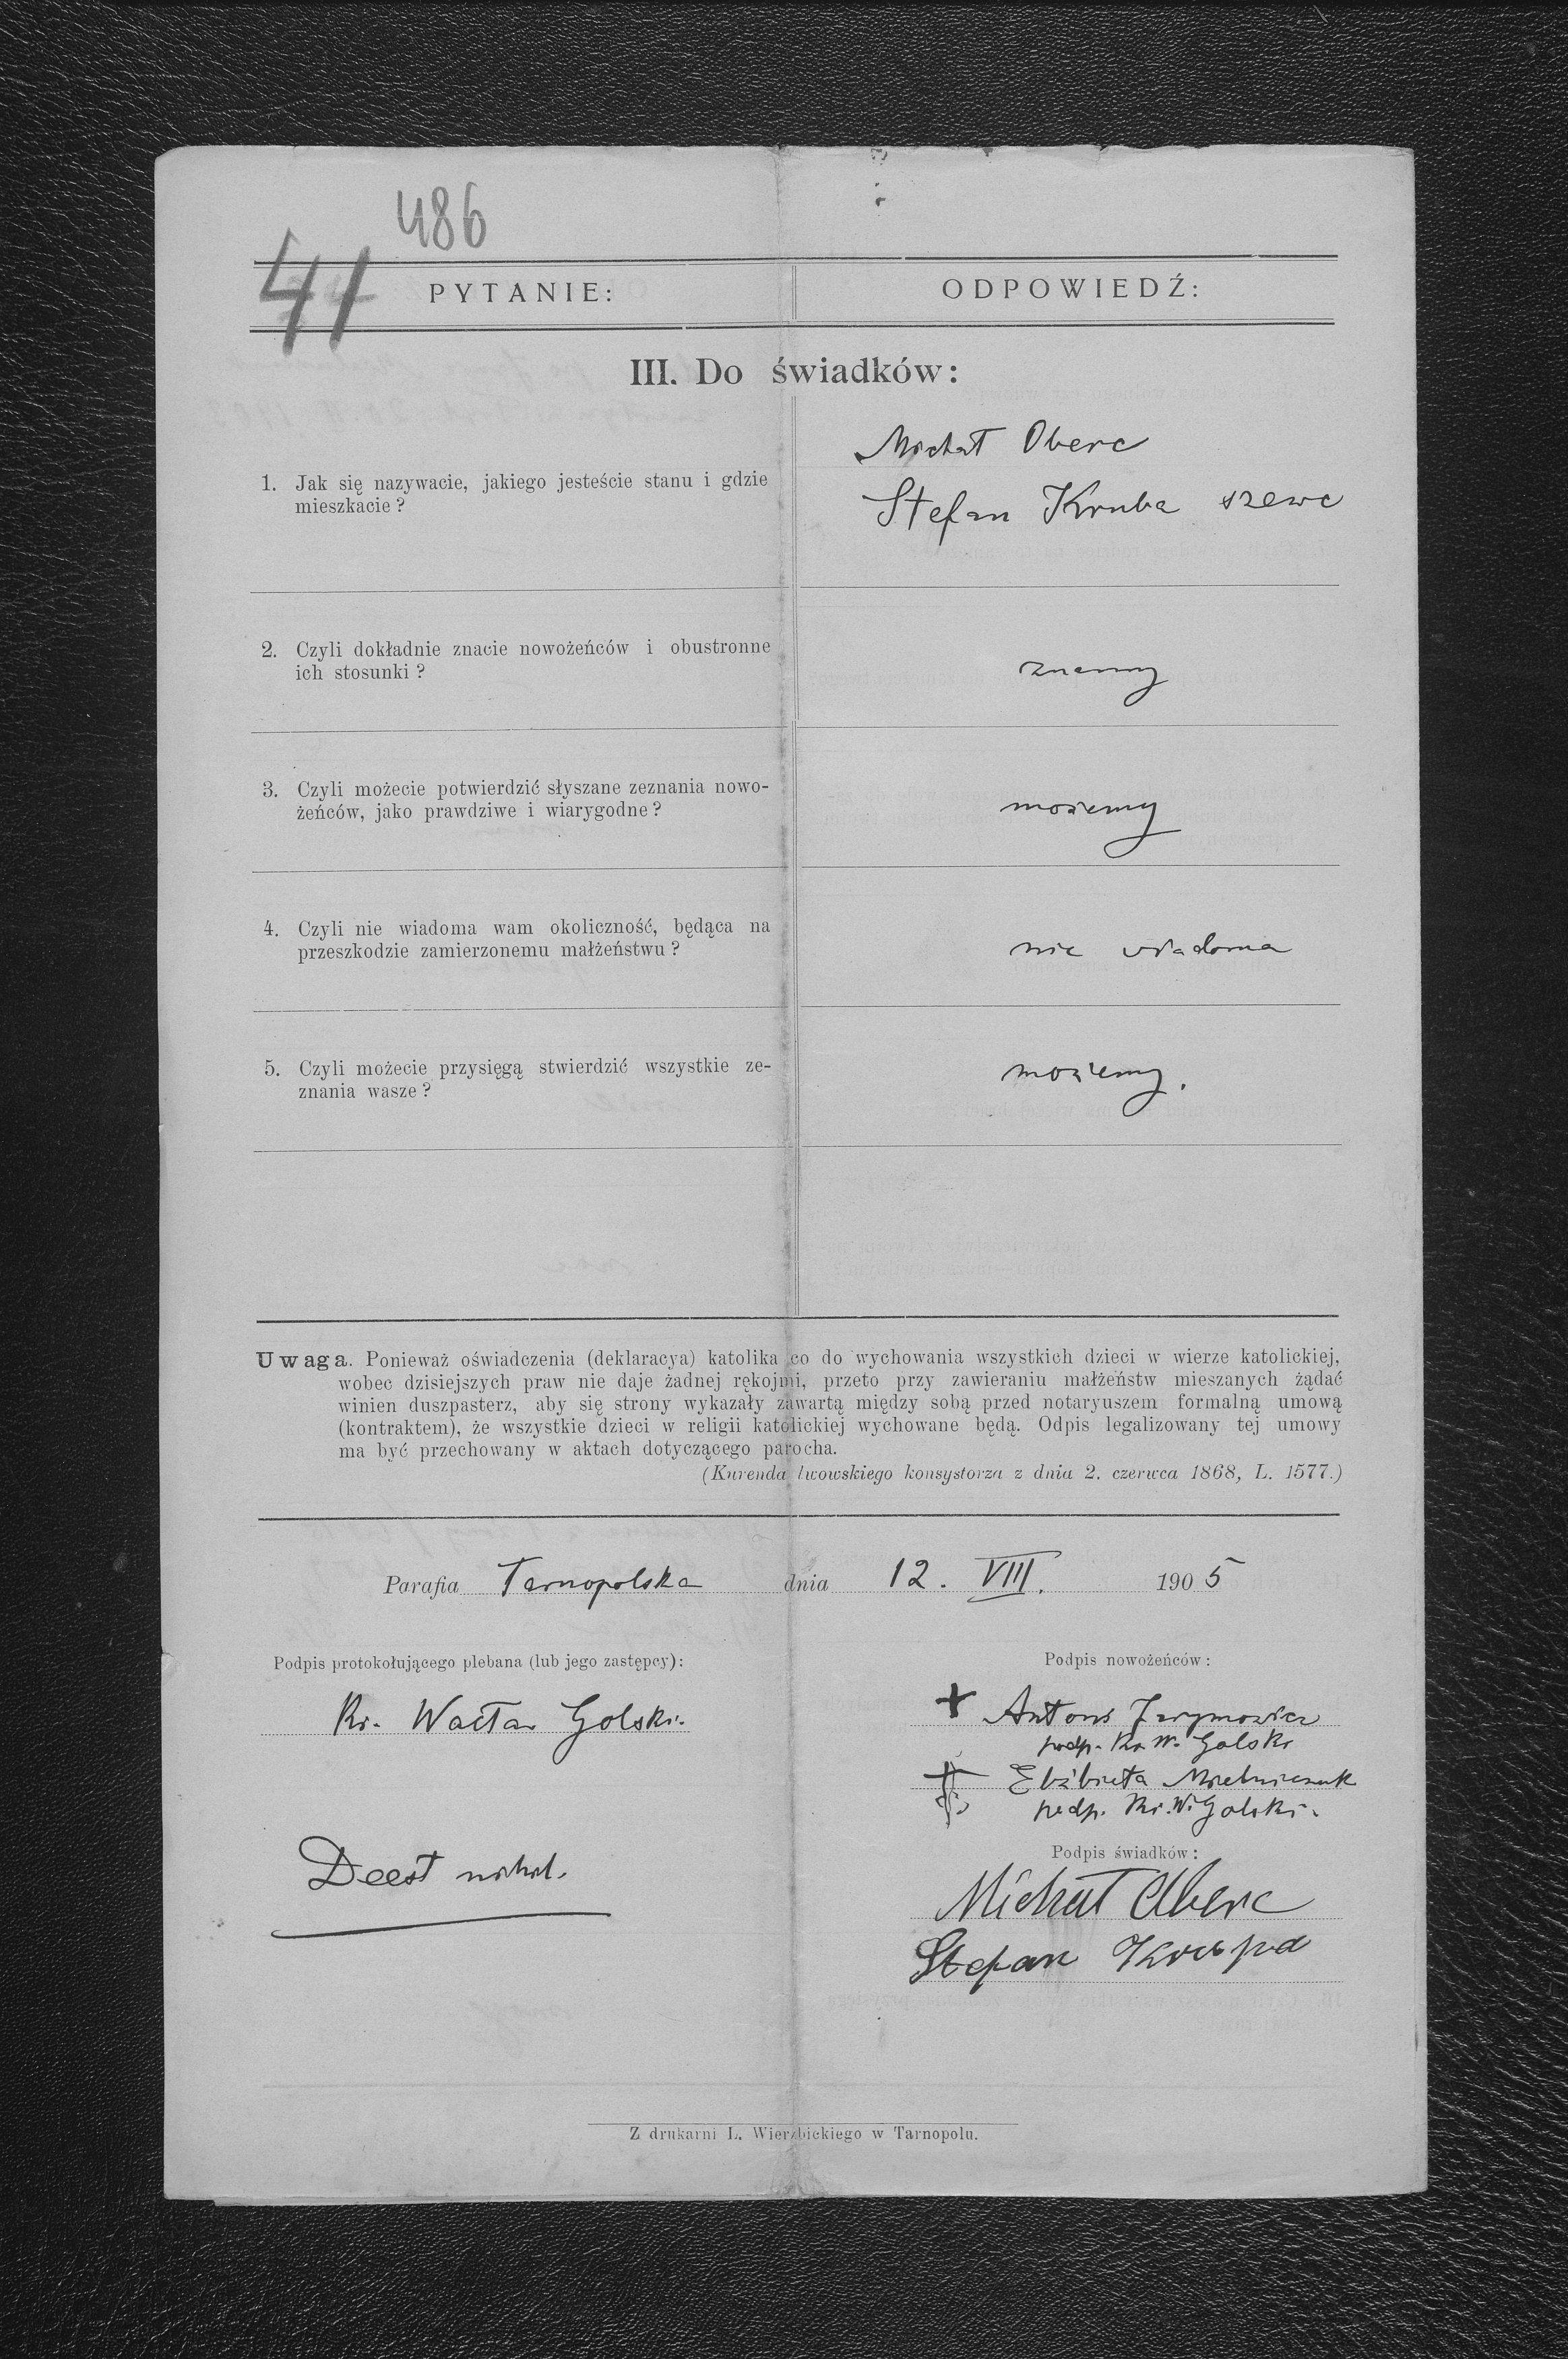 486
41
PYTANIE: ODPOWIEDŹ:
III. Do świadków:
1. Jak się nazywacie, jakiego jesteście stanu i gdzie
mieszkacie?
Michał Oberc
Stefan Kruba szewc
2. Czyli dokładnie znacie nowożeńców i obustronne
ich stosunki?
znamy
3. Czyli możecie potwierdzić słyszane zeznania nowo-
żeńców, jako prawdziwe i wiarygodne?
możemy
4. Czyli nie wiadoma wam okoliczność, będąca na
przeszkodzie zamierzonemu małżeństwu?
nie wiadoma
5. Czyli możecie przysięgą stwierdzić wszystkie ze-
znania wasze?
możemy.
Uwaga. Ponieważ oświadczenia (deklaracya) katolika co do wychowania wszystkich dzieci w wierze katolickiej,
wobec dzisiejszych praw nie daje żadnej rękojmi, przeto przy zawieraniu małżeństw mieszanych żądać
winien duszpasterz, aby się strony wykazały zawartą między sobą przed notaryuszem formalną umową
(kontraktem), że wszystkie dzieci w religii katolickiej wychowane będą. Odpis legalizowany tej umowy
ma być przechowany w aktach dotyczącego parocha.
(Kurenda lwowskiego konsystorza z dnia 2. czerwca 1868, L. 1577.)
Parafia Tarnopolska dnia 12. VIII. 1905
Podpis protokołującego plebana (lub jego zastępcy):
Ks. Wacław Golski.
Deest nihil.
Podpis nowożeńców:
+ Antoni
podp. Ks. W. Golski
+ Elżbieta Mielniczuk
podp. Ks. W. Golski.
Podpis świadków:
Michał Oberc
Stefan Krupa
Z drukarni L. Wierzbickiego w Tarnopolu.